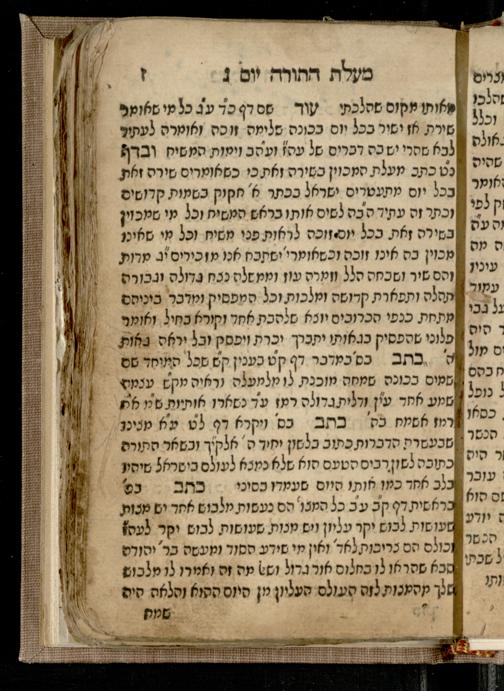 מעלת התורה יום ג ז
מאותו מקום שהלכתי עוד שם דף כ״ד ע״ב כל מי שאומר
שירת אז ישיר בכל יום בכונה שלימה זוכה ואומרה לעתיד
לבא שהרי יש בה דברים של עה״ז ועה״ב וימות המשיח ובדף
כ״ט כתב מעלת המכוין בשירה זאת כי כשאומרים שירה זאת
בכל יום מתעטרים ישראל בכתר א׳ חקוק בשמות קדושים
וכתר זה עתיד ה׳ב״ה לשים אותו בראש המשיח וכל מי שמכוין
בשירה זאת בכל יום זוכה לראות פני משיח וכל מי שאינו
מכוין בה אינו זוכה וכשאומרי׳ ישתבח אנו מזכירים י״ג מדות
והם שיר ושבחה הלל וזמרה עוז וממשלה נצח גדולה וגבורה
תהלה ותפארת קדושה ומלכות וכל המפסיק ומדבר ביניהם
מתחת כנפי הכרובים יוצא שלהבת אחד וקורא בחיל ואומר
פלוני שהפסיק בגאותו יתברך יכרת ויפסק ובל יראה גאות
ה׳ כתב בס׳ במדבר דף ק״ט בענין ק״ש שכל המיחד שם
שמים בכונה שמחה מוכנת לו מלמעלה וראיה מק״ש עצמה
שמע אחד ע״ין ודלית גדולה רמז ע״ד נשארו אותיות ש״מ א״ח
רמז אשמח בה׳ כתב בס׳ ויקרא דף ל״ט ע״א מנינו
שבעשרת הדברות כתוב בלשון יחיד ה׳ אלקיך ובשאר התורה
כתובה לשון רבים הטעם הוא שלא נמצא לעולם בישראל שיהיו
בלב אחד כמו אותו היום שעמדו בסיני כתב בס׳
בראשית דף ק״ב ע״ב כל המצו׳ הם נעשות מלבוש אחד יש מצות
שעושות לבוש יקר עליון ויש מצות שעושות לבוש יקר לעה״ז
וכולם הם צריכות לאד׳ ואין מי שידע הסוד ומעשה בר׳ יהודה
סבא שהראו לו בחלום אור גדול ושא׳ מה זה ואמרו לו מלבוש
שלך מהמצות לזה העולם העליון מן היום ההוא והלאה היה
שמח